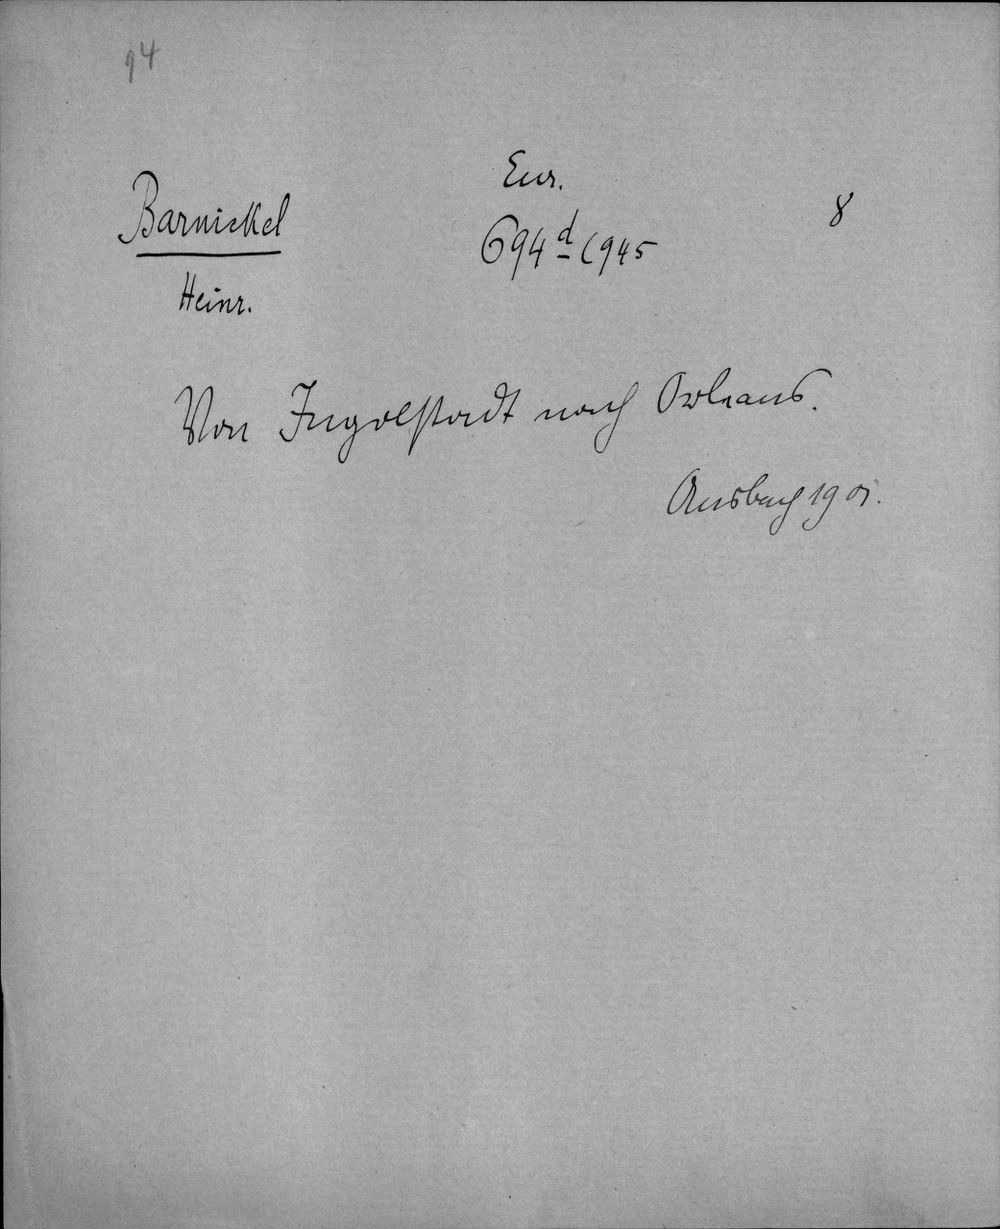 94
Barnickel
Heinr.
Eur.
694 d (945
8
Von Ingolstadt nach Orleans.
Ansbach 1901.